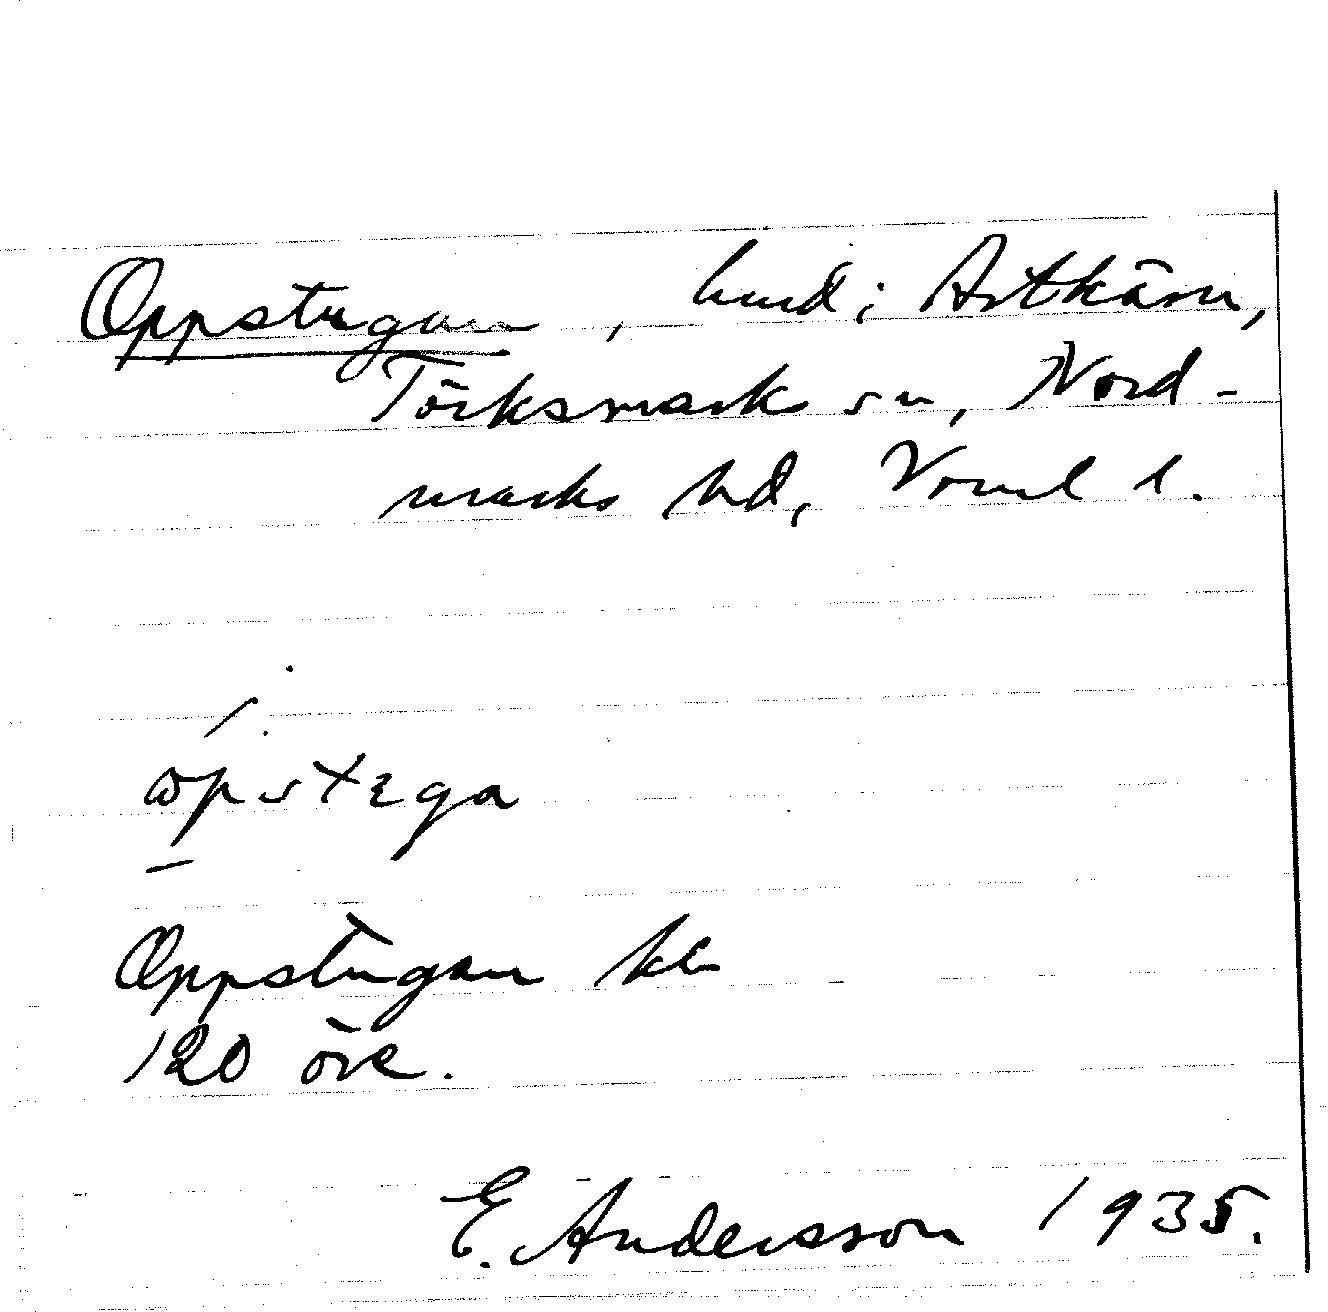 Oppstugan, hmd i Årtkärn,
Töcksmark sn, Nord-
marks hd, Vrml l.
öpstega
Oppstugan kl
120 öre.
E. Andersson 1935.